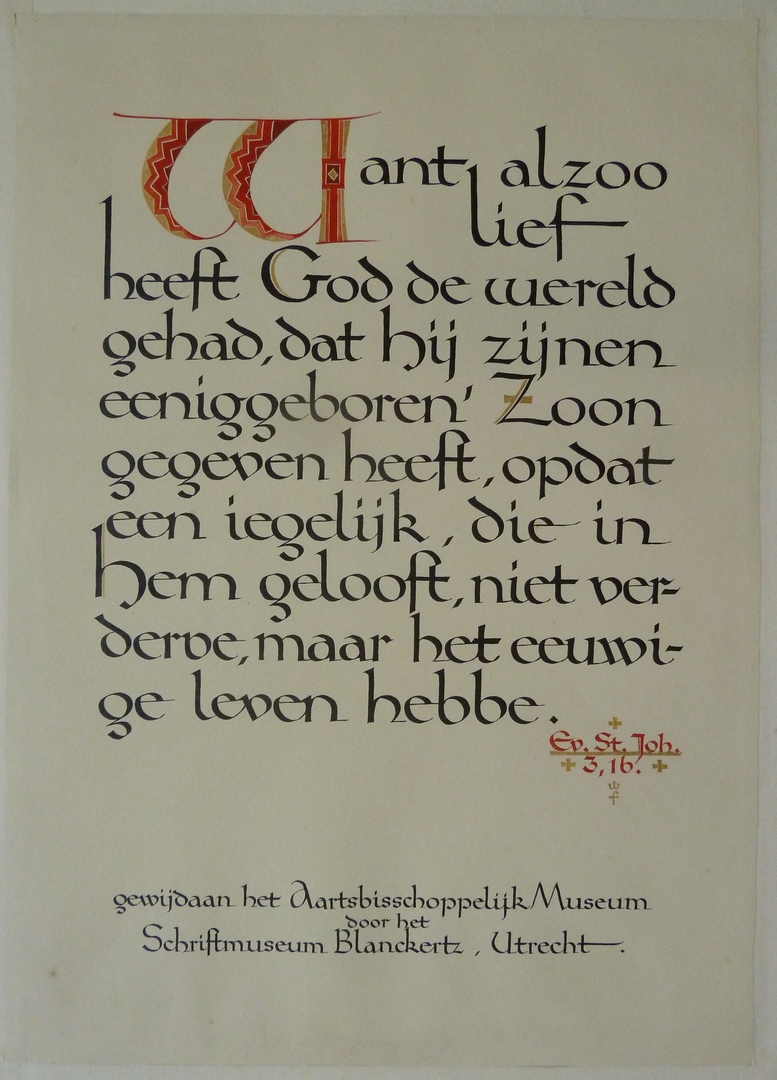 Want alzoo
lief
heeft God de wereld
gehad, dat hij zijnen
eeniggeboren' Zoon
gegeven heeft, opdat
een iegelijk, die in
hem gelooft, niet ver-
derve, maar het eeuwi-
ge leven hebbe.
Ev. St. Joh.
3, 16.
gewijd aan het Aartsbisschoppelijk Museum
door het
Schriftmuseum Blanckertz, Utrecht.